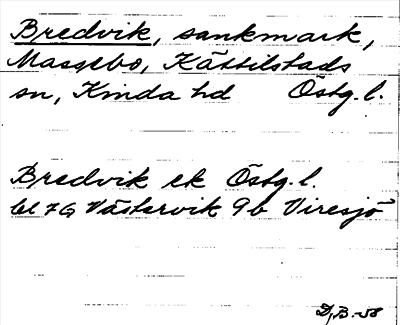 Bredvik, sankmark,
Massebo, Kättilstads
sn, Kinda hd Östg. l.
Bredvik ek Östg. l.
bl 7G Västervik 9b Viresjö
D,B.-58